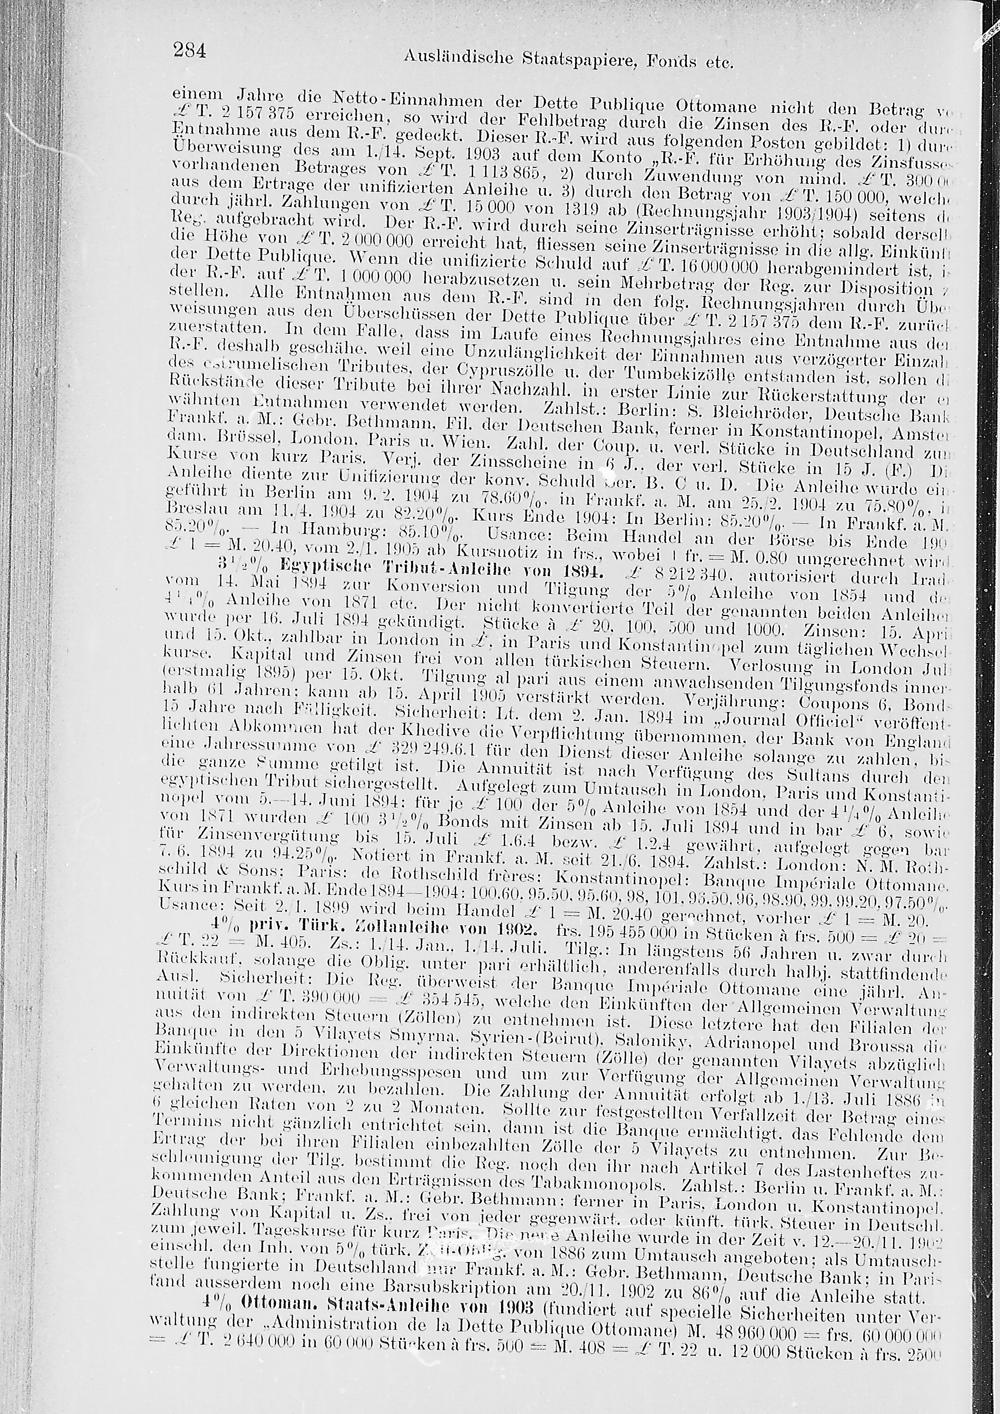 284
Ausländische Staatspapiere, Fonds etc.
einem Jahre die Netto-Einnahmen der Dette Publique Ottomane nicht den Betrag
£ T. 2 157 375 erreichen, so wird der Fehlbetrag durch die Zinsen des R.-F. oder
Entnahme aus dem R.-F. gedeckt. Dieser R.-F. wird aus folgenden Posten gebildet: 1)
Überweisung des am 1./14. Sept. 1903 auf dem Konto „R.-F. für Erhöhung des
vorhandenen Betrages von £ T. 1 113 865, 2) durch Zuwendung von mind. £ T.
aus dem Ertrage der unifizierten Anleihe u. 3) durch den Betrag von £ T. 150 000,
durch jährl. Zahlungen von £ T. 15 000 von 1319 ab (Rechnungsjahr 1903/1904) seitens
Reg. aufgebracht wird. Der R.-F. wird durch seine Zinserträgnisse erhöht; sobald
die Höhe von £ T. 2 000 000 erreicht hat, fliessen seine Zinserträgnisse in die allg.
der Dette Publique. Wenn die unifizierte Schuld auf £ T. 16 000 000 herabgemindert ist,
der R.-F. auf £ T. 1 000 000 herabzusetzen u. sein Mehrbetrag der Reg. zur Disposition
stellen. Alle Entnahmen aus dem R.-F. sind in den folg. Rechnungsjahren durch
weisungen aus den Überschüssen der Dette Publique über £ T. 2 157 375 dem R.-F.
zuerstatten. In dem Falle, dass im Laufe eines Rechnungsjahres eine Entnahme aus
R.-F. deshalb geschähe, weil eine Unzulänglichkeit der Einnahmen aus verzögerter
des ostrumelischen Tributes, der Cypruszölle u. der Tumbekizölle entstanden ist, sollen
Rückstände dieser Tribute bei ihrer Nachzahl. in erster Linie zur Rückerstattung der
wähnten Entnahmen verwendet werden. Zahlst.: Berlin: S. Bleichröder, Deutsche Bank
Frankf. a. M.: Gebr. Bethmann, Fil. der Deutschen Bank, ferner in Konstantinopel,
dam, Brüssel, London, Paris u. Wien. Zahl. der Coup. u. verl. Stücke in Deutschland
Kurse von kurz Paris. Verj. der Zinsscheine in 6 J., der verl. Stücke in 15 J. (F.)
Anleihe diente zur Unifizierung der konv. Schuld Ser. B, C u. D. Die Anleihe wurde
geführt in Berlin am 9./2. 1904 zu 78.60%, in Frankf. a. M. am 25./2. 1904 zu 75.80%,
Breslau am 11./4. 1904 zu 82.20%. Kurs Ende 1904: In Berlin: 85.20%. — In Frankf. a. M.
85.20%. — In Hamburg: 85.10%. Usance: Beim Handel an der Börse bis Ende
£ 1 = M. 20.40, vom 2./1. 1905 ab Kursnotiz in frs., wobei 1 fr. = M. 0.80 umgerechnet wird.
3½% Egyptische Tribut-Anleihe von 1894. £ 8 212 340, autorisiert durch
vom 14. Mai 1894 zur Konversion und Tilgung der 5% Anleihe von 1854 und
4¼% Anleihe von 1871 etc. Der nicht konvertierte Teil der genannten beiden
wurde per 16. Juli 1894 gekündigt. Stücke à £ 20, 100, 500 und 1000. Zinsen: 15.
und 15. Okt., zahlbar in London in £, in Paris und Konstantinopel zum täglichen Wechsel-
kurse. Kapital und Zinsen frei von allen türkischen Steuern. Verlosung in London
(erstmalig 1895) per 15. Okt. Tilgung al pari aus einem anwachsenden Tilgungsfonds inner-
halb 61 Jahren; kann ab 15. April 1905 verstärkt werden. Verjährung: Coupons 6, Bonds
15 Jahre nach Fälligkeit. Sicherheit: Lt. dem 2. Jan. 1894 im „Journal Officiel“ veröffent-
lichten Abkommen hat der Khedive die Verpflichtung übernommen, der Bank von England
eine Jahressumme von £ 329 249.6.1 für den Dienst dieser Anleihe solange zu zahlen, bis
die ganze Summe getilgt ist. Die Annuität ist nach Verfügung des Sultans durch den
egyptischen Tribut sichergestellt. Aufgelegt zum Umtausch in London, Paris und Konstanti-
nopel vom 5.—14. Juni 1894: für je £ 100 der 5% Anleihe von 1854 und der 4¼% Anleihe
von 1871 wurden £ 100 3½% Bonds mit Zinsen ab 15. Juli 1894 und in bar £ 6, sowie
für Zinsenvergütung bis 15. Juli £ 1.6.4 bezw. £ 1.2.4 gewährt, aufgelegt gegen bar
7./6. 1894 zu 94.25%. Notiert in Frankf. a. M. seit 21./6. 1894. Zahlst.: London: N. M. Roth-
schild & Sons; Paris: de Rothschild frères; Konstantinopel: Banque Impériale Ottomane.
Kurs in Frankf. a. M. Ende 1894—1904: 100.60, 95.50, 95.60, 98, 101, 93.50, 96, 98.90, 99, 99.20, 97.50%.
Usance: Seit 2./1. 1899 wird beim Handel £ 1 = M. 20.40 gerechnet, vorher £ 1 = M. 20.
4% priv. Türk. Zollanleihe von 1902. frs. 195 455 000 in Stücken à frs. 500 = £ 20 =
£ T. 22 = M. 405. Zs.: 1./14. Jan., 1./14. Juli. Tilg.: In längstens 56 Jahren u. zwar durch
Rückkauf, solange die Oblig. unter pari erhältlich, anderenfalls durch halbj. stattfindende
Ausl. Sicherheit: Die Reg. überweist der Banque Impériale Ottomane eine jährl. An-
nuität von £ T. 390 000 = £ 354 545, welche den Einkünften der Allgemeinen Verwaltung
aus den indirekten Steuern (Zöllen) zu entnehmen ist. Diese letztere hat den Filialen der
Banque in den 5 Vilayets Smyrna, Syrien-(Beirut), Saloniky, Adrianopel und Broussa die
Einkünfte der Direktionen der indirekten Steuern (Zölle) der genannten Vilayets abzüglich
Verwaltungs- und Erhebungsspesen und um zur Verfügung der Allgemeinen Verwaltung
gehalten zu werden, zu bezahlen. Die Zahlung der Annuität erfolgt ab 1./13. Juli 1886 in
6 gleichen Raten von 2 zu 2 Monaten. Sollte zur festgestellten Verfallzeit der Betrag eines
Termins nicht gänzlich entrichtet sein, dann ist die Banque ermächtigt, das Fehlende dem
Ertrag der bei ihren Filialen einbezahlten Zölle der 5 Vilayets zu entnehmen. Zur Be-
schleunigung der Tilg. bestimmt die Reg. noch den ihr nach Artikel 7 des Lastenheftes zu-
kommenden Anteil aus den Erträgnissen des Tabakmonopols. Zahlst.: Berlin u. Frankf. a. M.:
Deutsche Bank; Frankf. a. M.: Gebr. Bethmann; ferner in Paris, London u. Konstantinopel.
Zahlung von Kapital u. Zs., frei von jeder gegenwärt. oder künft. türk. Steuer in Deutschl.
zum jeweil. Tageskurse für kurz Paris. Die neue Anleihe wurde in der Zeit v. 12.—20./11. 1902
einschl. den Inh. von 5% türk. Zoll-Oblig. von 1886 zum Umtausch angeboten; als Umtausch-
stelle fungierte in Deutschland nur Frankf. a. M.: Gebr. Bethmann, Deutsche Bank; in Paris
fand ausserdem noch eine Barsubskription am 20./11. 1902 zu 86% auf die Anleihe statt.
4% Ottoman. Staats-Anleihe von 1903 (fundiert auf specielle Sicherheiten unter Ver-
waltung der „Administration de la Dette Publique Ottomane) M. 48 960 000 = frs. 60 000 000
= £ T. 2 640 000 in 60 000 Stücken à frs. 500 = M. 408 = £ T. 22 u. 12 000 Stücken à frs. 2500